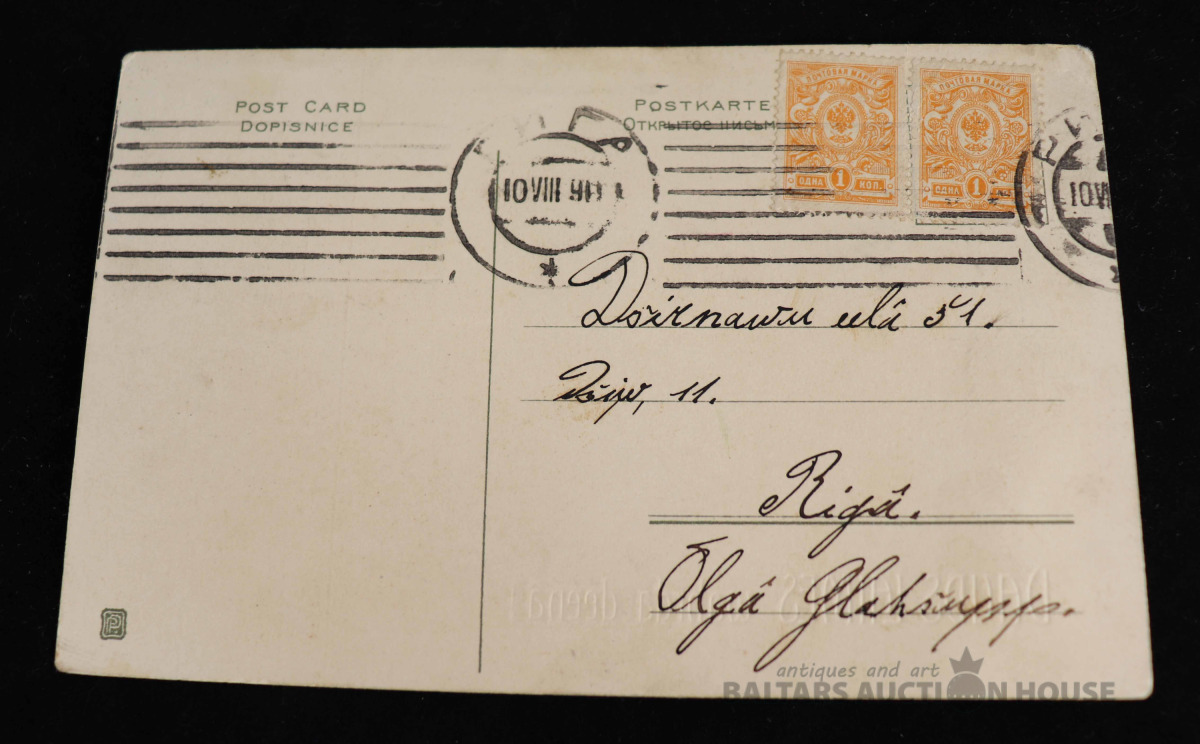 POST CARD
DOPISNICE
POSTKARTE
ОТКРЫТОЕ ПИСЬМ
ПОЧТОВАЯ МАРКА
ОДНА 1 КОП.
ПОЧТОВАЯ МАРКА
ОДНА 1
10 VIII 910
10 VI
Dsirnawu ulâ 51.
Dsiw, 11.
Rigâ.
Olgâ
antiques and art
BALTARS AUCTION HOUSE